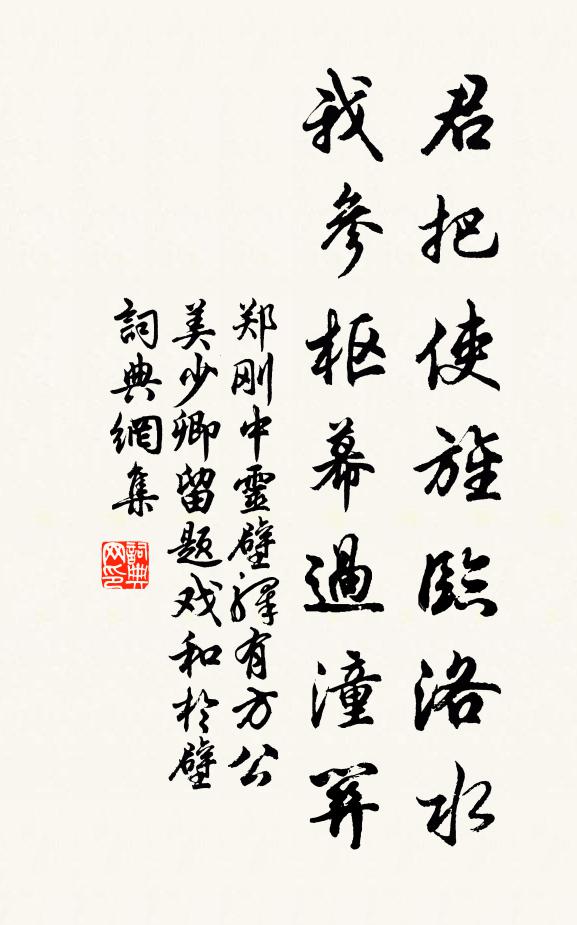 君把使旌臨洛水
我參枢幕過潼關
郑刚中靈壁驛有方公
美少卿留题戏和於壁
詞典網集
詞典网印